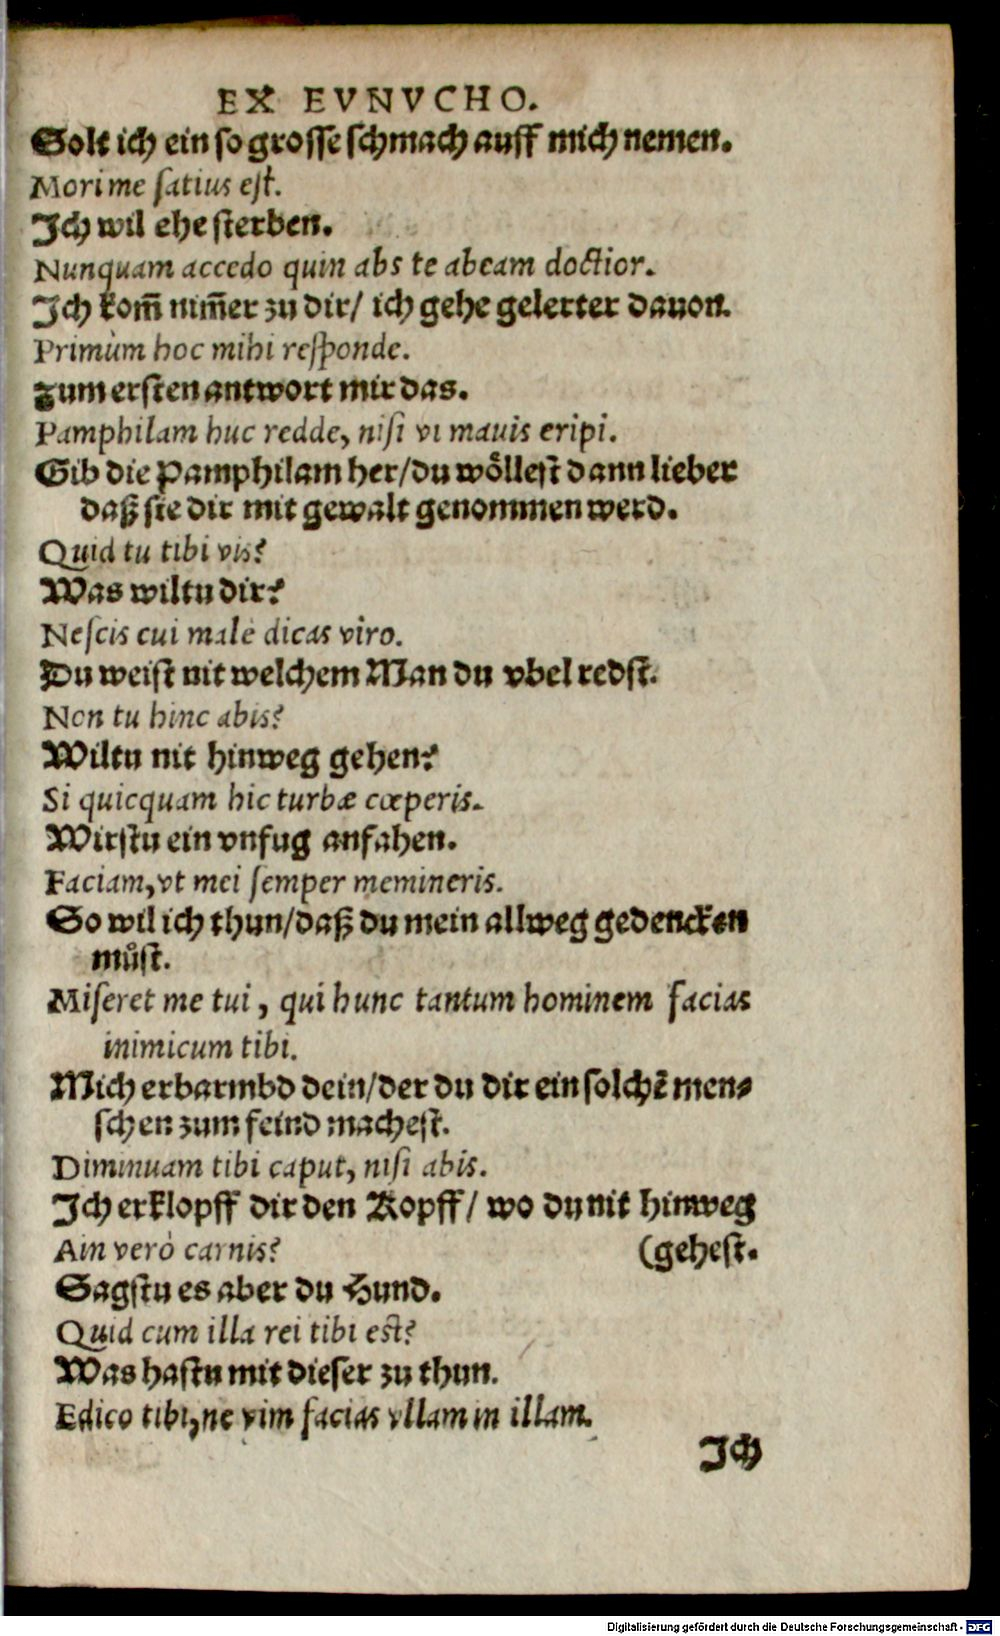 EX EVNVCHO.
Solt ich ein so grosse schmach auff mich nemen.
Mori me satius est.
Ich wil ehe sterben.
Nunquam accedo quin abs te abeam doctior.
Ich kom̄ nim̄er zu dir/ ich gehe gelerter dauon.
Primùm hoc mihi responde.
Zum ersten antwort mir das.
Pamphilam huc redde, nisi vi mauis eripi.
Gib die Pamphilam her/du woͤllest dann lieber
daß sie dir mit gewalt genommen werd.
Quid tu tibi vis?
Was wiltu dir?
Nescis cui malè dicas viro.
Du weist nit welchem Man du vbel redst.
Non tu hinc abis?
Wiltu nit hinweg gehen?
Si quicquam hic turbæ cœperis.
Wirstu ein vnfug anfahen.
Faciam,vt mei semper memineris.
So wil ich thun/daß du mein allweg gedencken
muͤst.
Miseret me tui, qui hunc tantum hominem facias
inimicum tibi.
Mich erbarmbd dein/der du dir ein solchē men-
schen zum feind machest.
Diminuam tibi caput, nisi abis.
Ich erklopff dir den Kopff/ wo du nit hinweg
Ain verò carnis? (gehest.
Sagstu es aber du Hund.
Quid cum illa rei tibi est?
Was hastu mit dieser zu thun.
Edico tibi,ne vim facias vllam in illam.
Ich
Digitalisierung gefördert durch die Deutsche Forschungsgemeinschaft - DFG